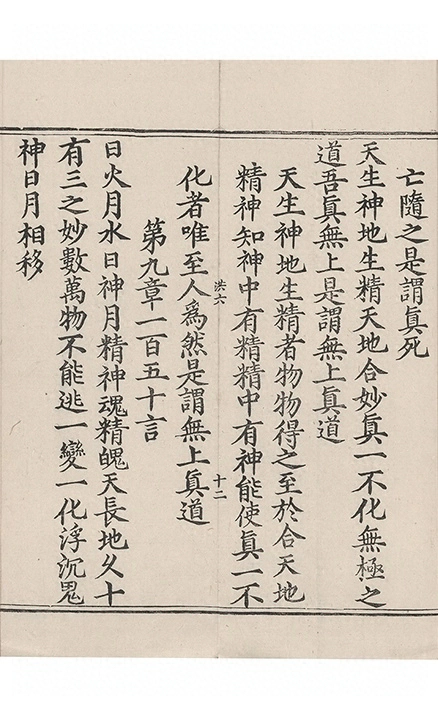 亡隨之是謂眞死
天生神地生精天地合妙眞一不化無極之
道吾眞無上是謂無上眞道
天生神地生精者物物得之至於合天地
精神知神中有精精中有神能使眞一不
洪六
十二
化者唯至人爲然是謂無上眞道
第九章一百五十言
日火月水日神月精神魂精魄天長地久十
有三之妙數萬物不能逃一變一化浮沉鬼
神日月相移